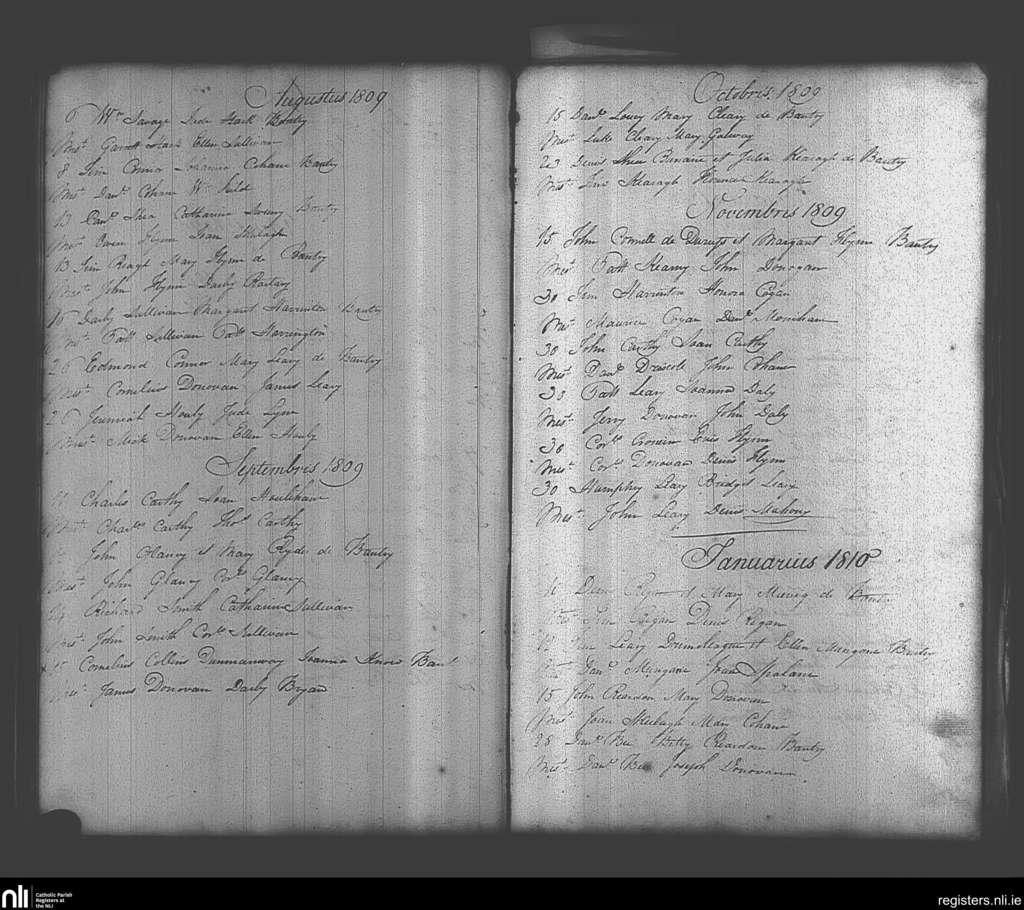 Augustus 1809
6 Wm Savage Jude Hark Bantry
Prest. Garrett Hark Ellen Sullivan
8 Tim Connor Cohane Bantry
Prest. Danl. Cohane Wm.
13 Danl. Shea Catharine Bantry
Prest. Owen Flynn Joan
13 Tim Reagh Mary Flynn de Bantry
Prest. John Flynn Darby
16 Darby Sullivan Margaret Harrinton Bantry
Prest. Patt Sullivan Patt Harrington
26 Edmond Connor Mary Leary de Bantry
Prest. Cornelius Donovan James Leary
26 Jeremiah Houly Jude Lynn
Prest. Mick Donovan Ellen Houly
Septembris 1809
Charles Carthy Joan Houlihane
Prest. Charles Carthy Thos. Carthy
John Glanny et Mary Ryder de Bantry
Prest. John Glanny Glanny
24 Richard Smith Catharine Sullivan
Prest. John Smith Cors. Sullivan
Cornelius Collins Dunmanway Joanna Bant
Prest. James Donovan Darby Bryan
Octobris 1809
15 Danl. Lowry Mary Cleary de Bantry
Prest. Luke Cleary Mary Galway
23 Denis Shea et Julia Kearagh de Bantry
Prest. Kearagh Florence Kearagh
Novembris 1809
15 John Connell de et Margaret Flynn Bantry
Prest. Patt Kearny John Donogan
30 Tim Harrinton Honora Cogan
Prest. Maurice Cogan Danl. Monihane
30 John Carthy Joan Carthy
Prest. Danl. Driscole John Cohane
30 Patt Leary Joanna Daly
Prest. Jerry Donovan John Daly
30 Cors. Cronin Flynn
Prest. Cors. Donovan Denis Flynn
30 Humphry Leary Bridget Leary
Prest. John Leary Denis Mahony
Januarius 1810
Denis Regan et Mary de Bantry
Prest. Regan Denis Regan
Leary Drumoleague et Ellen Bantry
Prest. Danl. Joan Spalane
15 John Reardon Mary Donovan
Prest. Joan Mary Cohane
28 Danl. Bee Betty Reardon Bantry
Prest. Danl. Bee Joseph Donovan
nli
Catholic Parish
Registers at
the NLI
registers.nli.ie